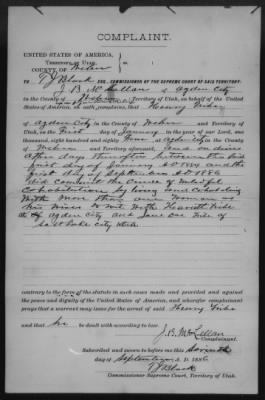 COMPLAINT.
UNITED STATES OF AMERICA,
TERRITORY OF UTAH,
COUNTY OF Weber
To T J Black ESQ., COMMISSIONER OF THE SUPREME COURT OF SAID TERRITORY:
J. B. McLellan of Ogden City
in the County of Weber Territory of Utah, on behalf of the United
States of America, on oath complains, that Henry
of Ogden City in the County of Weber and Territory of
Utah, on the First day of January in the year of our Lord, one
thousand, eight hundred and eighty at Ogden City in the County
of Weber and Territory aforesaid, and on divers
other days thereafter between the said
first day of January AD and the
first day of September AD 1886
did commit the crime of unlawful
Cohabitation by living and Cohabiting
with more than one woman as
his wives to wit with
of Ogden City and Jane
Salt Lake City Utah
contrary to the form of the statute in such cases made and provided and against
the peace and dignity of the United States of America, and wherefore complainant prays
that a warrant may issue for the arrest of said Henry
and that he be dealt with according to law.
J. B. McLellan
Subscribed and sworn to before me this Seventh
day of September A. D. 1886
T J Black
Commissioner Supreme Court, Territory of Utah.